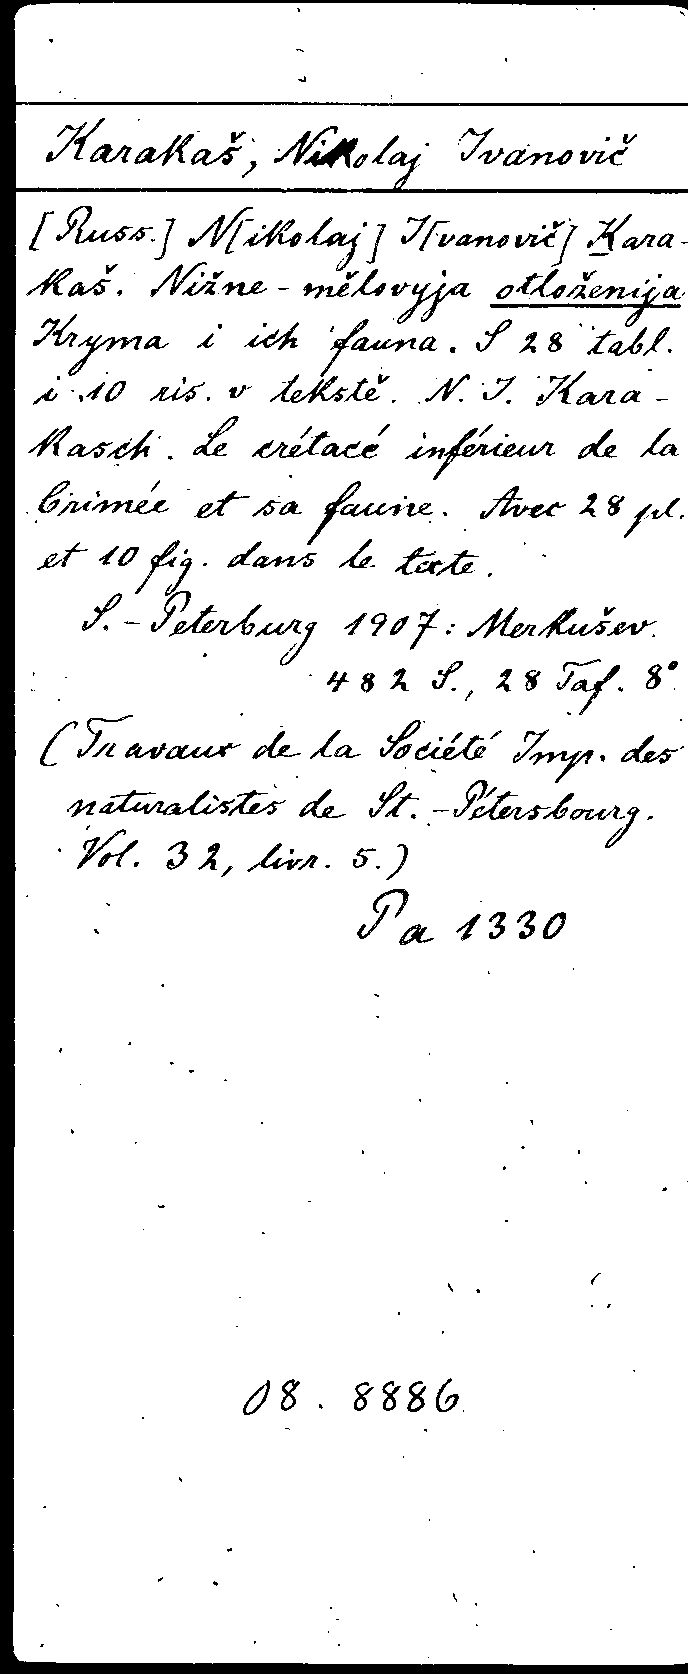 Karakaš, Nikolaj Ivanovič
[Russ.] N[ikolaj] I[vanovič] Kara-
kaš. Nižne-mělovyja otloženija
Kryma i ich fauna. S 28 tabl.
i 10 ris. v tekstě. N. I. Kara-
kasch. Le crétacé inférieur de la
Crimée et sa faune. Avec 28 pl.
et 10 fig. dans le texte.
S.-Peterburg 1907: Merkušev.
482 S., 28 Taf. 8°
(Travaux de la Société Imp. des
naturalistes de St.-Pétersbourg.
Vol. 32, livr. 5.)
Pa 1330
08. 8886